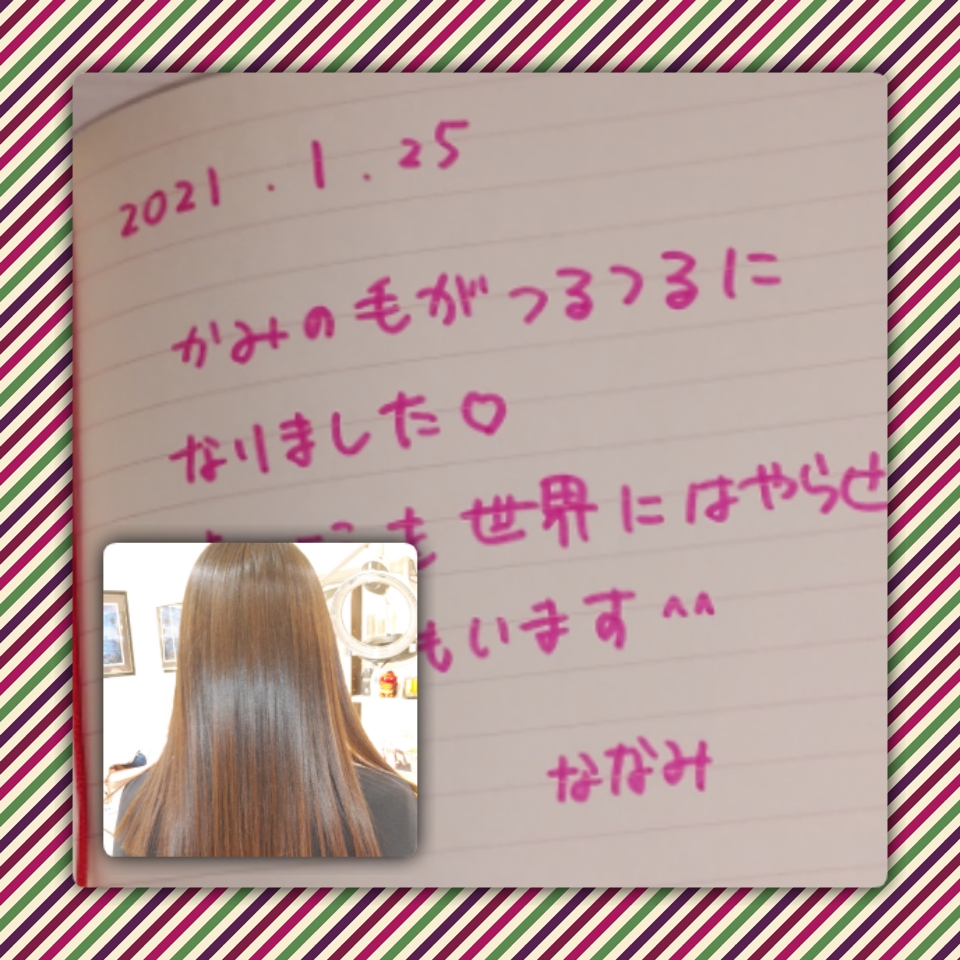 2021.1.25
かみの毛がつるつるに
なりました♡
も 世界にはやらせ
もいます^^
ななみ